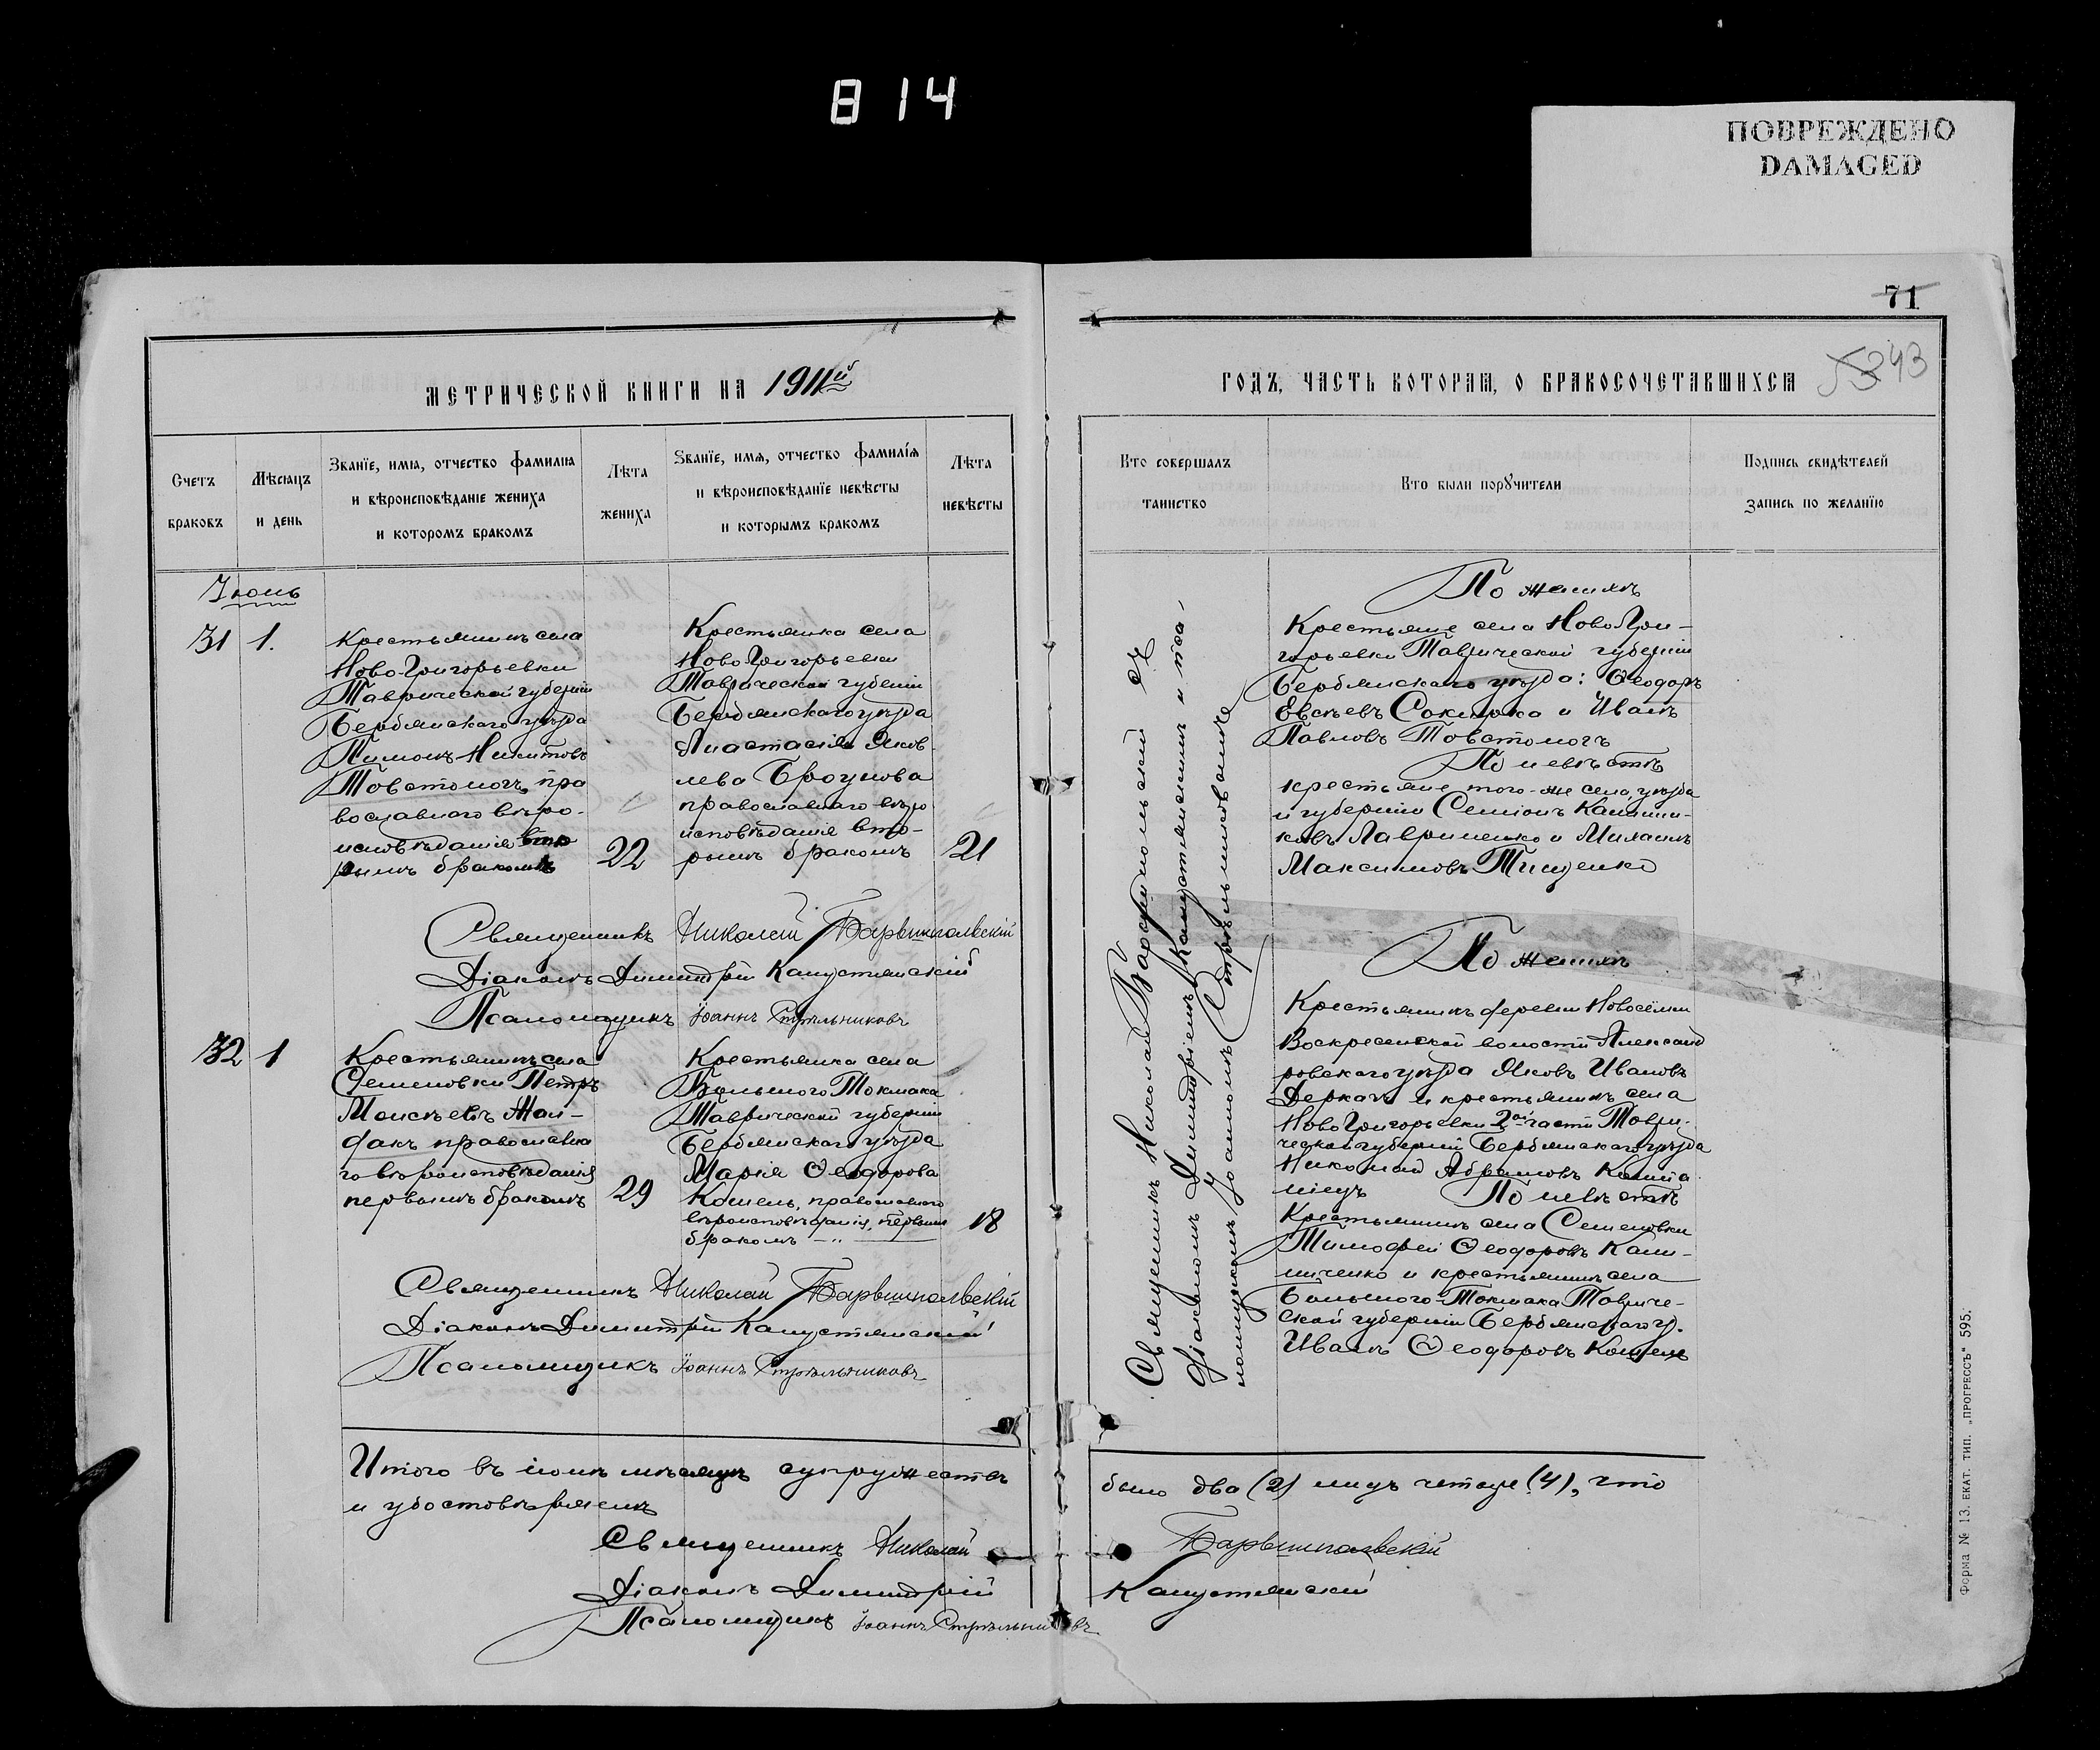 814
ПОВРЕЖДЕНО
DAMAGED
71
343
МЕТРИЧЕСКОЙ КНИГИ НА 1911й
ГОДЪ, ЧАСТЬ ВТОРАЯ, О БРАКОСОЧЕТАВШИХСЯ
Счетъ браковъ
Мѣсяцъ и день
Званїе, имя, отчество фамилия
и вѣроисповѣданїе жениха
и которомъ бракомъ
Лѣта жениха
Званїе, имя, отчество фамилїя
и вѣроисповѣданїе невѣсты
и которымъ бракомъ
Лѣта невѣсты
Кто совершалъ таинство
Кто были поручители
Подпись свидѣтелей
запись по желанїю
Іюнь
31
1.
Крестьянинъ села
НовоГригорьевки
Таврической губерніи
Бердянскаго уѣзда
Пимонъ Никитовъ
Товстоногъ, пра
вославнаго вѣро-
исповѣданія вто
рымъ бракомъ
22
Крестьянка села
НовоГригорьевки
Таврической губеніи
Бердянскаго уѣзда
Анастасія Яков
лева Брогунова
православнаго вѣро
исповѣданія вто-
рымъ бракомъ
21
Священникъ Николай Барвинпольскій
Діаконъ Димитрій Капустянскій
Псаломщикъ Іоаннъ Стрѣльниковъ
32
1
Крестьянинъ села
Семеновки Петръ
Моисѣевъ Жай-
факъ православна
го вѣроисповѣданія
первымъ бракомъ
29
Крестьянка села
Большого Токмака
Таврической губерніи
Бердянскаго уѣзда
Марія Ѳеодорова
Кошель, православного
вѣроисповѣданія, первымъ
бракомъ
18
Священникъ Николай Барвинпольскій
Діаконъ Димитрій Капустянскій
Псаломщикъ Іоаннъ Стрѣльниковъ
Итого въ іюнѣ мѣсяцѣ супружествъ
и удостовѣряемъ
Священникъ Николай
Діаконъ Димитрій
Псаломщикъ Іоаннъ Стрѣльниковъ
Священникъ Николай Барвинпольскій съ
діакономъ Димитріемъ Капустянскимъ и пса-
ломщикомъ Іоанномъ Стрѣльниковымъ
По женихѣ
Крестьяне села НовоГри-
горьевки Таврической губерніи
Бердянскаго уѣзда: Ѳеодоръ
Евсѣевъ Сокирка и Иванъ
Павловъ Товстоногъ
По невѣстѣ
крестьяне того-же села, уѣзда
и губерніи Семіонъ Калинни-
ковъ Лавриненко и Михаилъ
Максимовъ Тищенко
По женихѣ
Крестьянинъ деревни Новосёлки
Воскресенской волости Александ
ровскаго уѣзда Яковъ Ивановъ
Деркачъ и крестьянинъ села
НовоГригорьевки 2ой части Таври-
ческой губерніи Бердянскаго уѣзда
Николай Абрамовъ
По невѣстѣ
Крестьянинъ села Семеновки
Тимофей Ѳеодоровъ Кали-
ниченко и крестьянинъ села
Большого-Токмака Тавриче-
ской губерніи Бердянскаго у.
Иванъ Ѳеодоровъ Кошель
было два (2) лицъ четыре (4), что
Барвинпольскій
Капустянскій
Форма № 13. ЕКАТ. ТИП. „ПРОГРЕССЪ“ 595.